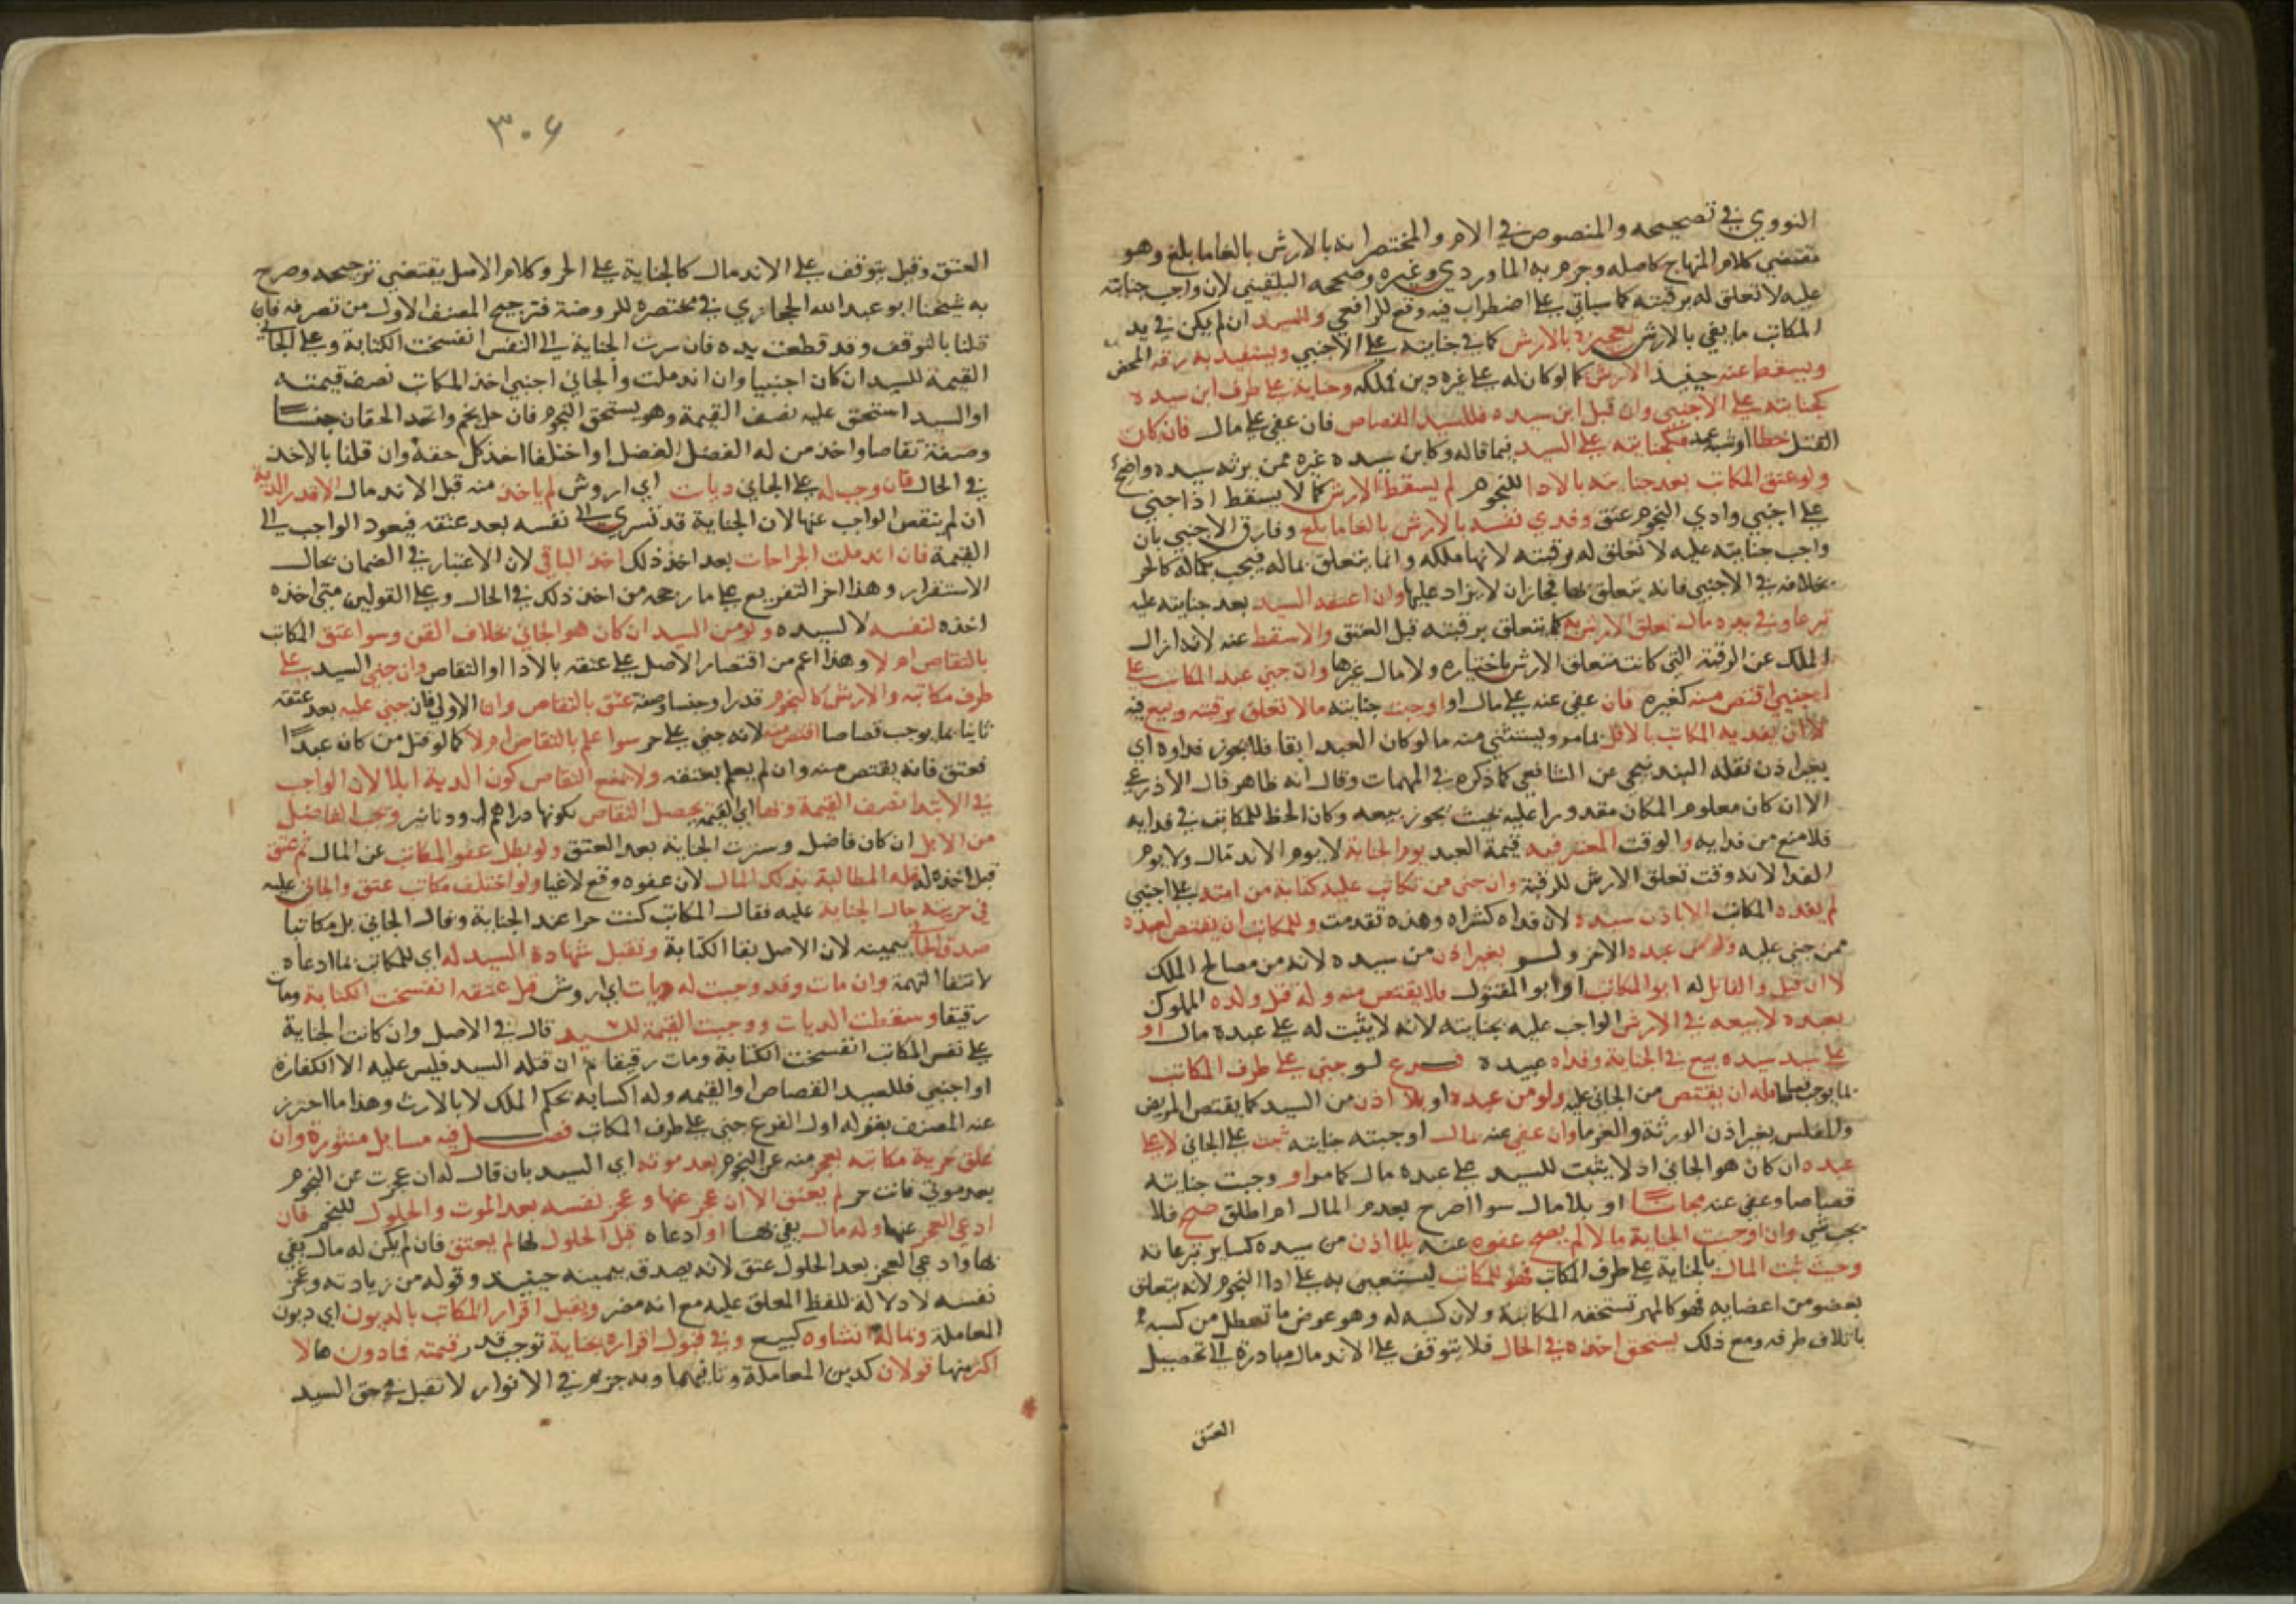 النووي في تصحيحه والمنصوص في الام والمختصر انه بالارش بالغا ما بلغ وهو
مقتضي كلام المنهاج كاصله وجزم به الماوردي وغيره وصححه البلقيني لان واجب جنايته
عليه لا تعلق له برقبته كما سياتي علي اضطراب فيه وقع للرافعي وللسيد ان لم يكن في يد
المكاتب ما يفي بالارش تعجيزه بالارش كما في جنايته علي الاجنبي ويستفيد به رقه المحض
ويسقط عنه حينيذ الارش كما لو كان له علي غيره دين فملكه وجناية علي طرف ابن سيده
كجنايته علي الاجنبي وان قتل ابن سيده فللسيد القصاص فان عفي علي مال فان كان
القتل خطا او شبه عمد فكجنايته علي السيد فيما قاله وكابن سيده غيره ممن يرثه سيده واضح
ولو عتق المكاتب بعد جنايته بالادا للنجوم لم يسقط الارش كما لا يسقط اذا جني
علي اجنبي وادي النجوم عتق وفدي نفسه بالارش بالغا ما بلغ وفارق الاجنبي بان
واجب جنايته عليه لا تعلق له برقبته لانها ملكه وانما يتعلق بماله فيجب بكماله كالحر
بخلافه في الاجنبي فانه يتعلق بها فجاز ان لا يزاد عليها وان اعتقه السيد بعد جنايته عليه
تبرعا وفي يده مال تعلق الارش به كما يتعلق برقبته قبل العتق والا سقط عنه لانه ازال
الملك عن الرقبة التي كانت متعلق الارش باختياره ولا مال غيرها وان جني عبد المكاتب علي
اجنبي اقتص منه كغيره فان عفي عنه علي مال او اوجبت جنايته مالا تعلق برقبته وبيع فيه
الا ان يفديه المكاتب بالاقل مما مر ويستثني منه ما لو كان العبد ابقا فلا يجوز فداوه اي
بغير اذن نقله البندنيجي عن الشافعي كما ذكره في المهمات وقال انه ظاهر قال الاذرعي
الا ان كان معلوم المكان مقدورا عليه بحيث يجوز بيعه وكان الحظ للمكاتب في فدايه
فلا منع من فدايه والوقت المعتبر فيه قيمة العبد يوم الجناية لا يوم الاندمال ولا يوم
الفدا لانه وقت تعلق الارش للرقبة وان جني من تكاتب عليه كتابة من امته علي اجنبي
لم يفده المكاتب الا باذن سيده لان فداه كشراه وهذه تقدمت وللمكاتب ان يقتص لعبده
ممن جني عليه ولو من عبده الاخر ولو بغير اذن من سيده لانه من مصالح الملك
لا ان قتل والقاتل له ابو المكاتب او ابو المقتول فلا يقتص منه وله قتل ولده المملوك
بعبده لا بيعه في الارش الواجب عليه بجنايته لانه لا يثبت له علي عبده مال او
علي سيد سيده بيع في الجناية وفداه عبيده فرع لو جني علي طرف المكاتب
بما يوجب قصاصا فله ان يقتص من الجاني عليه ولو من عبده او بلا اذن من السيد كما يقتص المريض
والمفلس بغير اذن الورثة والغرما وان عفي عنه بمال او اوجبته جنايته ثبت علي الجاني لا علي
عبده ان كان هو الجاني اذ لا يثبت للسيد علي عبده مال كما مر او وجبت جنايته
قصاصا وعفي عنه مجانا او بلا مال سوا اصرح بعدم المال ام اطلق صح فلا
يجب شي وان اوجبت الجناية مالا لم يصح عفوه عنه بلا اذن من سيده كساير تبرعاته
وحيث ثبت المال بالجناية علي طرف المكاتب فهو للمكاتب يستعين به علي ادا النجوم لانه يتعلق
بعضو من اعضايه فهو كالمهر تستحقه المكاتبة ولان كسبه له وهو عوض ما تعطل من كسبه
باتلاف طرفه ومع ذلك يستحق اخذه في الحال فلا يتوقف علي الاندمال مبادرة الي تحصيل
العتق
٣٠٦
العتق وقيل يتوقف علي الاندمال كالجناية علي الحر وكلام الاصل يقتضي ترجيحه وصرح
به شيخنا ابو عبد الله الحجازي في مختصره للروضة فترجيح المصنف الاول من تصرفه فان
قلنا بالتوقف وقد قطعت يده فان سرت الجناية الي النفس انفسخت الكتابة وعلي الجاني
القيمة للسيد ان كان اجنبيا وان اندملت والجاني اجنبي اخذ المكاتب نصف قيمته
او السيد استحق عليه نصف القيمة وهو يستحق النجوم فان حل نجم واتحد الحقان جنسا
وصفة تقاصا واخذ من له الفضل الفضل او اختلفا اخذ كل حقه وان قلنا بالاخذ
في الحال فان وجب له علي الجاني ديات اي اروش لم ياخذ منه قبل الاندمال الا قدر الدية
ان لم ينقص الواجب عنها لان الجناية قد تسري الي نفسه بعد عتقه فيعود الواجب الي
القيمة فان اندملت الجراحات بعد اخذ ذلك اخذ الباقي لان الاعتبار في الضمان بحال
الاستقرار وهذا اخر التفريع علي ما رجحه من اخذ ذلك في الحال وعلي القولين متي اخذه
اخذه لنفسه لا لسيده ولو من السيد ان كان هو الجاني بخلاف القن وسوا عتق المكاتب
بالتقاص ام لا وهذا اعم من اقتصار الاصل علي عتقه بالادا او التقاص وان جني السيد علي
طرف مكاتبه والارش كالنجوم قدرا وجنسا وصفة عتق بالتقاص وان الاولي فان جني عليه بعد عتقه
ثانيا بما يوجب قصاصا اقتص منه لانه جني علي حر سوا علم بالتقاص ام لا كما لو قتل من كان عبدا
فعتق فانه يقتص منه وان لم يعلم بعتقه ولا يمنع التقاص كون الدية ابلا لان الواجب
في الابتدا نصف القيمة وبها اي القيمة يحصل التقاص بكونها دراهم او دنانير وتجب الفاضل
من الابل ان كان فاضل وسرت الجناية بعد العتق ولو بطل عفو المكاتب عن المال ثم عتق
قبل اخذه له فله المطالبة بذلك المال لان عفوه وقع لاغيا ولو اختلف مكاتب عتق والجاني عليه
في حريته حال الجناية عليه فقال المكاتب كنت حرا عند الجناية وقال الجاني بل مكاتبا
صدق الجاني بيمينه لان الاصل بقا الكتابة وتقبل شهادة السيد له اي للمكاتب بما ادعاه
لانتفا التهمة وان مات وقد وجبت له ديات اي اروش قبل عتقه انفسخت الكتابة ومات
رقيقا وسقطت الديات ووجبت القيمة للسيد قال في الاصل وان كانت الجناية
علي نفس المكاتب انفسخت الكتابة ومات رقيقا ثم ان قتله السيد فليس عليه الا الكفارة
او اجنبي فللسيد القصاص او القيمه وله اكسابه بحكم الملك لا بالارث وهذا ما احترز
عنه المصنف بقوله اول الفرع جني علي طرف المكاتب فصل فيه مسايل منثورة وان
علق حرية مكاتبه بعجز منه عن النجوم بعد موته اي السيد بان قال له ان عجزت عن النجوم
بعد موتي فانت حر لم يعتق الا ان عجز عنها وعجز نفسه بعد الموت والحلول للنجم فان
ادعي العجز عنها وله مال يفي بها او ادعاه قبل الحلول لها لم يعتق فان لم يكن له مال يفي
بها وادعي العجز بعد الحلول عتق لانه يصدق بيمينه حينيذ وقوله من زيادته وعجز
نفسه لا دلالة للفظ المعلق عليه مع انه مضر ويقبل اقرار المكاتب بالديون اي ديون
المعاملة وبما له انشاوه كبيع وفي قبول اقراره بجناية توجب قدر قيمته فما دون مالا
اكثر منها قولان كدين المعاملة وثانيهما وبه جزم في الانوار لا تقبل في حق السيد